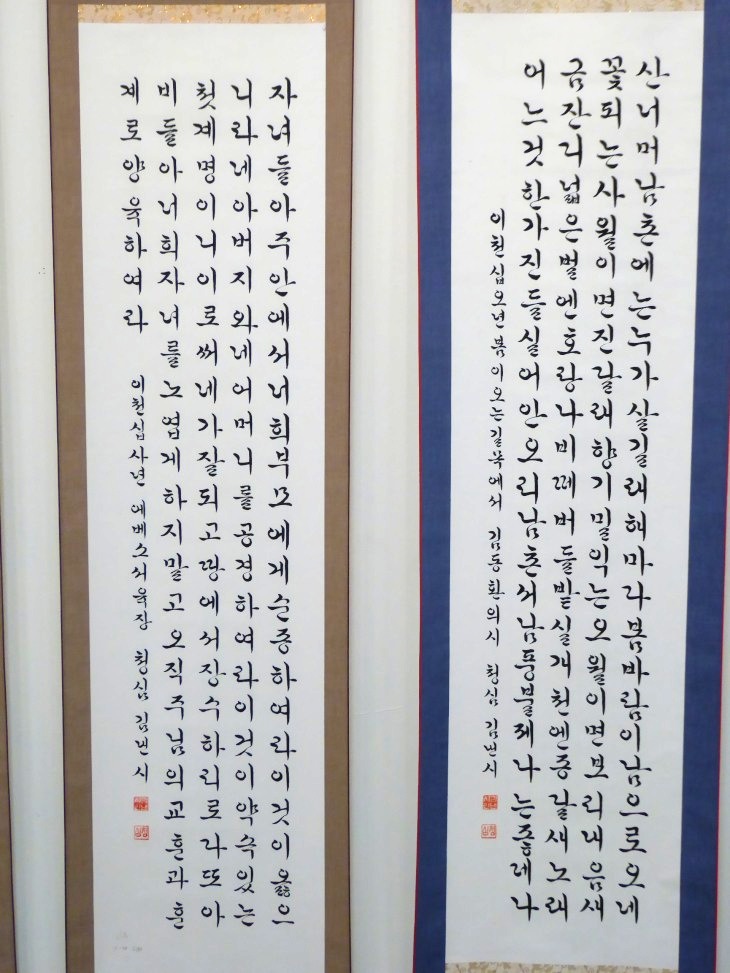 산너머남촌에는누가살길래해마다봄바람이남으로오네
꽃피는사월이면진달래향기밀익는오월이면보리내음새
금잔디넓은벌엔호랑나비떼버들밭실개천엔종달새노래
어느것한가진들실어안오리남촌서남풍불제나는좋데나
이천십오년봄이오는길목에서 김동환의시 청심
자녀들아주안에서너희부모에게순종하여라이것이옳으
니라네아버지와네어머니를공경하여라이것이약속있는
첫계명이니이로써네가잘되고땅에서장수하리로라또아
비들아너희자녀를노엽게하지말고오직주님의교훈과훈
계로양육하여라
이천십사년 에베소서육장 청심